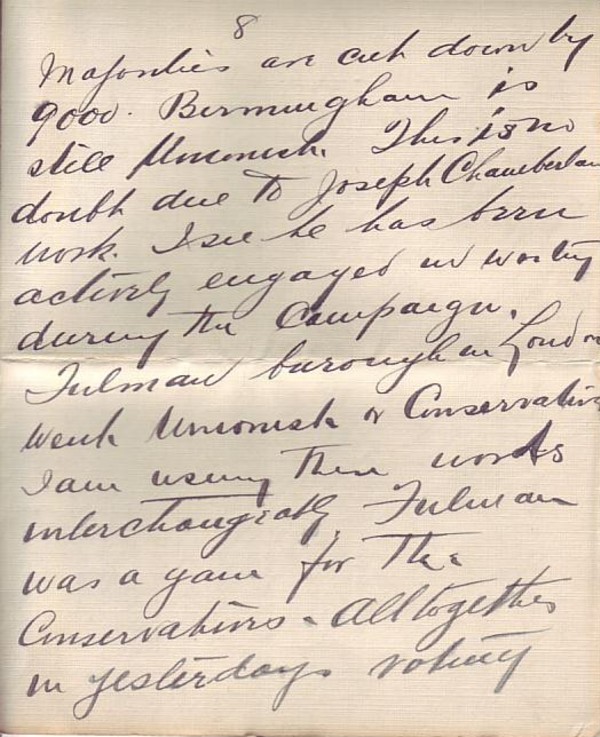 8
Majorities are cut down by
9000. Birmingham is
still Unionist. This is no
doubt due to Joseph Chamberlain
work. I see he has been
actively engaged in writing
during the Campaign.
Fulman burough in London
went Unionist or Conservative
I am using these words
interchangeably. Fulman
was a gain for the
Conservatives - All together
in yesterdays voting